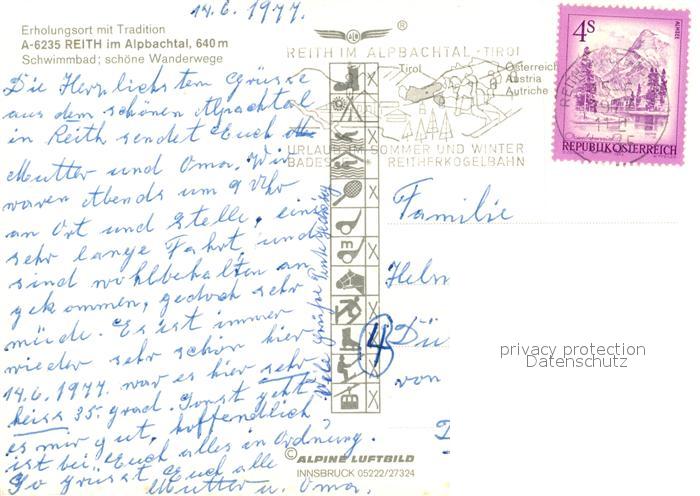 14.6.1977.
Erholungsort mit Tradition
A-6235 REITH im Alpbachtal, 640 m
Schwimmbad; schöne Wanderwege
Die Herzlichsten Grüsse
aus dem schönen Alpachtal
in Reith sendet Euch
Mutter und Oma. Wir
waren Abends um 9 Uhr
an Ort und Stelle, eine
sehr lange Fahrt, und
sind wohlbehalten an
gekommen, jedoch sehr
müde. Es ist immer
wieder sehr schön hier
14.6.1977. war es hier sehr
heiss 35. grad. Sonst geht
es mir gut, hoffendlich
ist bei Euch alles in Ordnung.
So grüsst Euch alle
Mutter u. Oma.
Viele Grüße
REITH IM ALPBACHTAL - TIROL
Tirol
Österreich
Austria
Autriche
URLAUB IM SOMMER UND WINTER
BADESEE REITHERKOGELBAHN
4 S
ALMSEE
REPUBLIK ÖSTERREICH
Familie
Helm
4
Dü
von
privacy protection
Datenschutz
© ALPINE LUFTBILD
INNSBRUCK 05222/27324